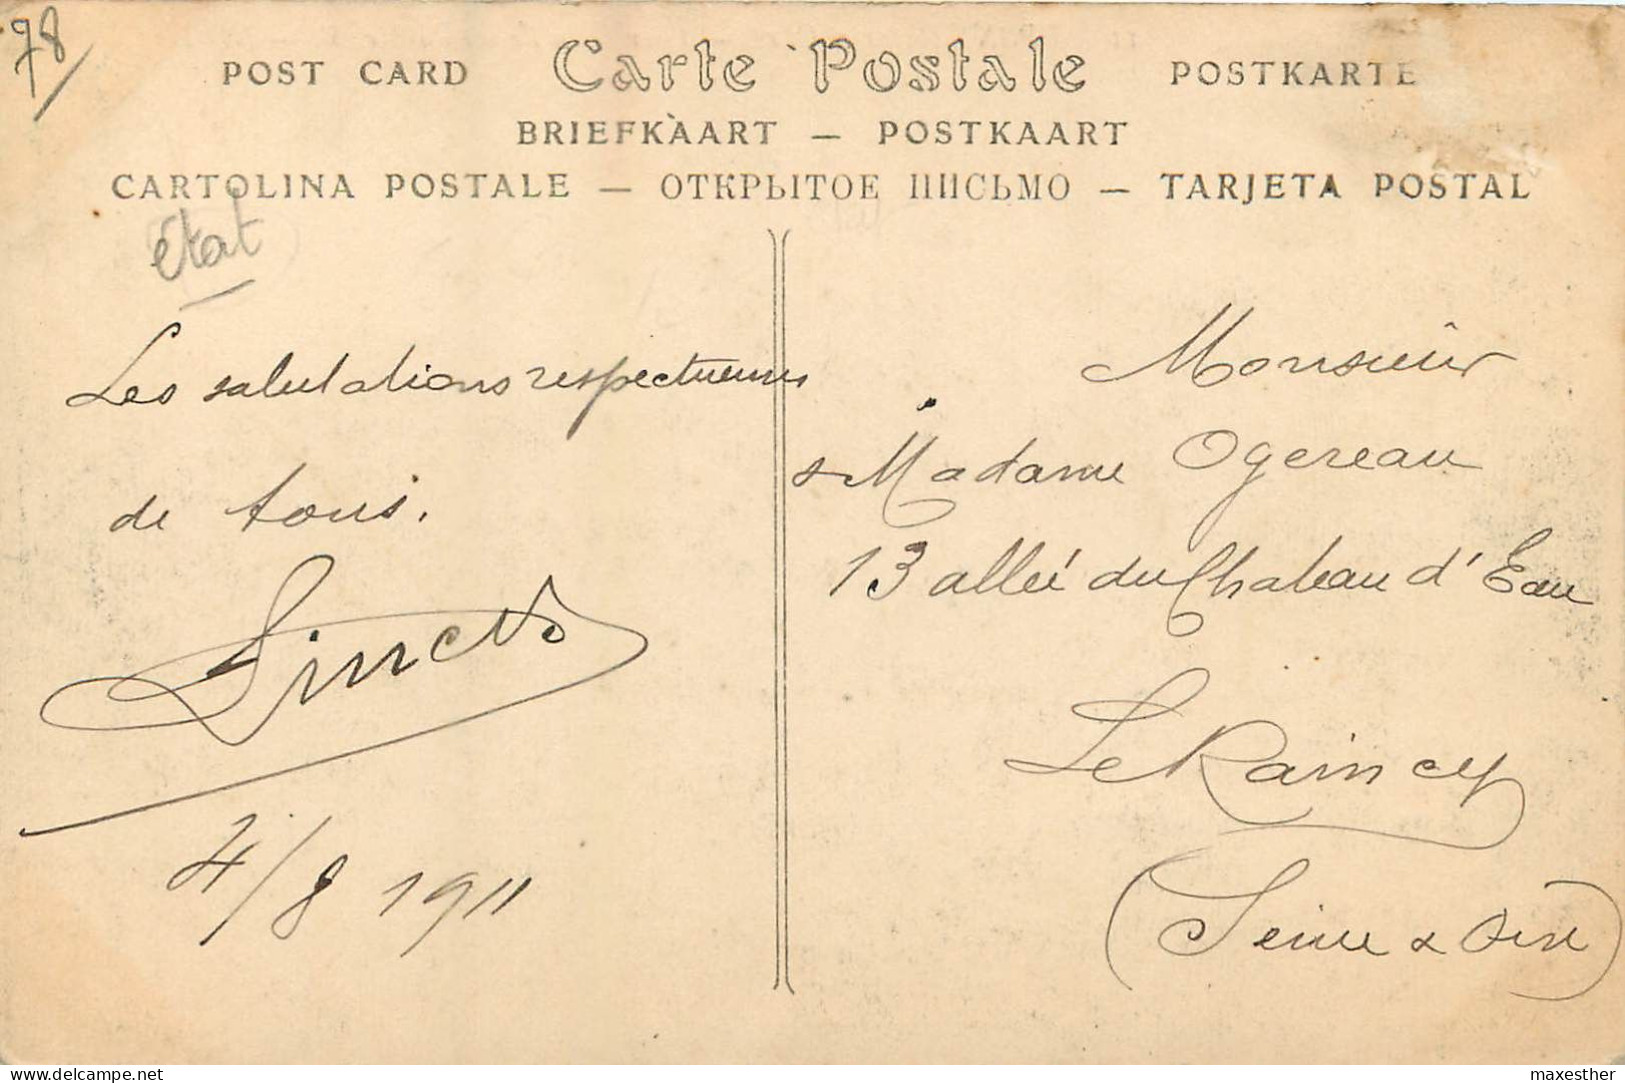 78
POST CARD Carte Postale POSTKARTE
BRIEFKAART — POSTKAART
CARTOLINA POSTALE — ОТКРЫТОЕ ПИСЬМО — TARJETA POSTAL
état
Les salutations respectueuses
de tous.
4/8 1911
Monsieur
& Madame Ogereau
13 allée du Chateau d'Eau
Le Raincy
(Seine & Oise)
delcampe.net
maxesther